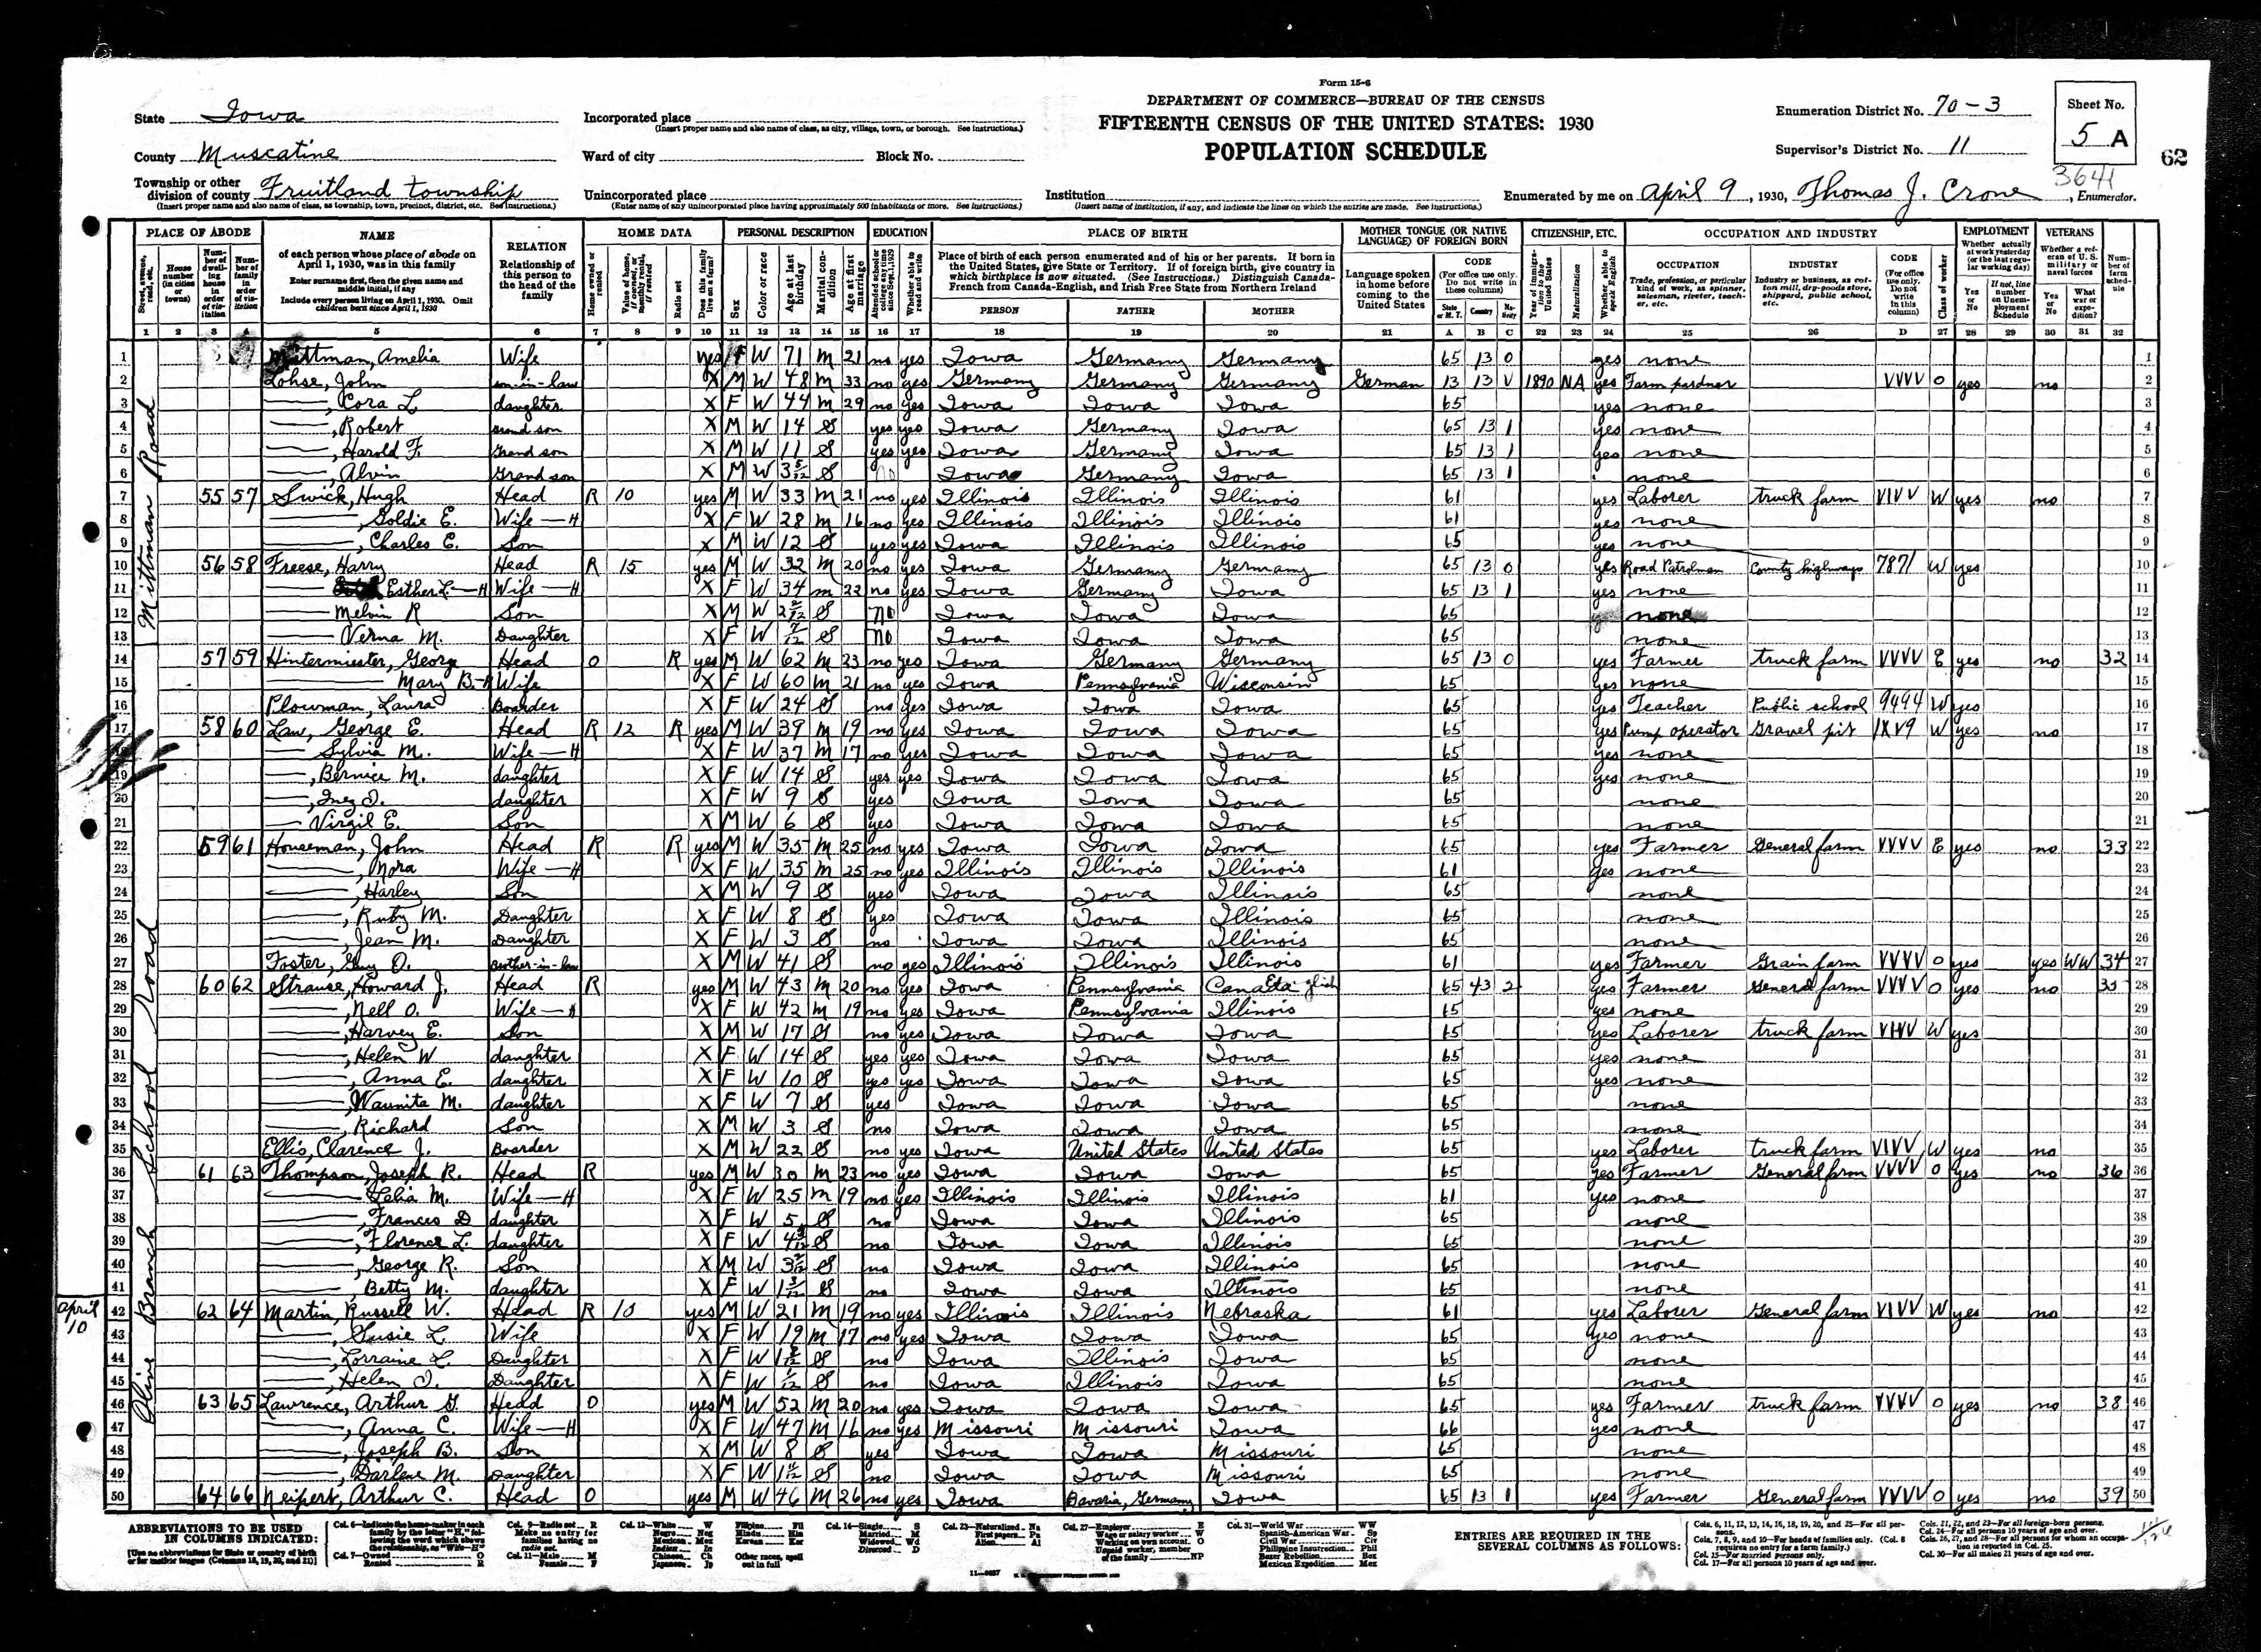 Form 15-6
DEPARTMENT OF COMMERCE—BUREAU OF THE CENSUS
FIFTEENTH CENSUS OF THE UNITED STATES: 1930
POPULATION SCHEDULE
State Iowa
County Muscatine
Township or other division of county Fruitland township
(Insert proper name and also name of class, as township, town, precinct, district, etc. See instructions.)
Incorporated place
(Insert proper name and also name of class, as city, village, town, or borough. See instructions.)
Ward of city Block No.
Unincorporated place
(Enter name of any unincorporated place having approximately 500 inhabitants or more. See instructions.)
Institution
(Insert name of institution, if any, and indicate the lines on which the entries are made. See instructions.)
Enumeration District No. 70-3
Supervisor's District No. 11
Sheet No. 5 A
62
3641
Enumerated by me on April 9, 1930, Thomas J. Crone, Enumerator.
PLACE OF ABODE NAME RELATION HOME DATA PERSONAL DESCRIPTION EDUCATION PLACE OF BIRTH MOTHER TONGUE (OR NATIVE LANGUAGE) OF FOREIGN BORN CITIZENSHIP, ETC. OCCUPATION AND INDUSTRY EMPLOYMENT VETERANS
1 2 3 4 5 6 7 8 9 10 11 12 13 14 15 16 17 18 19 20 21 A B C 22 23 24 25 26 D 27 28 29 30 31 32
Mittman Road
1 Mittman, Amelia Wife yes F W 71 M 21 no yes Iowa Germany Germany 65 13 0 yes none 1
2 Lohse, John son-in-law X M W 48 M 33 no yes Germany Germany Germany German 13 13 V 1890 NA yes Farm pardner VVVV O yes no 2
3 —, Cora L. daughter X F W 44 M 29 no yes Iowa Iowa Iowa 65 yes none 3
4 —, Robert Grand son X M W 14 S yes yes Iowa Germany Iowa 65 13 1 yes none 4
5 —, Harold F. Grand son X M W 11 S yes yes Iowa Germany Iowa 65 13 1 yes none 5
6 —, Alvin Grand son X M W 3 5/12 S no Iowa Germany Iowa 65 13 1 none 6
7 55 57 Swick, Hugh Head R 10 yes M W 33 M 21 no yes Illinois Illinois Illinois 61 yes Laborer truck farm VIVV W yes no 7
8 —, Goldie E. Wife—H X F W 28 M 16 no yes Illinois Illinois Illinois 61 yes none 8
9 —, Charles E. Son X M W 12 S yes yes Iowa Illinois Illinois 65 yes none 9
10 56 58 Freese, Harry Head R 15 yes M W 32 M 20 no yes Iowa Germany Germany 65 13 0 yes Road Patrolman County highways 7871 W yes 10
11 Esther L.—H Wife—H X F W 34 M 22 no yes Iowa Germany Iowa 65 13 1 yes none 11
12 — Melvin R Son X M W S no Iowa Iowa Iowa 65 none 12
13 — Verna M. Daughter X F W S no Iowa Iowa Iowa 65 none 13
14 57 59 Hintermiester, George Head O R yes M W 62 M 23 no yes Iowa Germany Germany 65 13 0 yes Farmer truck farm VVVV E yes no 32 14
15 — Mary B.—H Wife X F W 60 M 21 no yes Iowa Pennsylvania Wisconsin 65 yes none 15
16 Plowman, Laura Boarder X F W 24 S no yes Iowa Iowa Iowa 65 yes Teacher Public school 9494 W yes 16
Oline Branch School Road
17 58 60 Law, George E. Head R 12 R yes M W 39 M 19 no yes Iowa Iowa Iowa 65 yes Pump operator Gravel pit IXV9 W yes no 17
18 — Sylvia M. Wife—H X F W 37 M 17 no yes Iowa Iowa Iowa 65 yes none 18
19 —, Bernice M. daughter X F W 14 S yes yes Iowa Iowa Iowa 65 yes none 19
20 —, Inez I. daughter X F W 9 S yes Iowa Iowa Iowa 65 none 20
21 — Virgil E. Son X M W 6 S yes Iowa Iowa Iowa 65 none 21
22 59 61 Houseman, John Head R R yes M W 35 M 25 no yes Iowa Iowa Iowa 65 yes Farmer General farm VVVV E yes no 33 22
23 —, Nora Wife—H X F W 35 M 25 no yes Illinois Illinois Illinois 61 yes none 23
24 —, Harley Son X M W 9 S yes Iowa Iowa Illinois 65 none 24
25 —, Ruby M. Daughter X F W 8 S yes Iowa Iowa Illinois 65 none 25
26 —, Jean M. Daughter X F W 3 S no Iowa Iowa Illinois 65 none 26
27 Foster, Guy O. Brother-in-law X M W 41 S no yes Illinois Illinois Illinois 61 yes Farmer Grain farm VVVV O yes yes WW 34 27
28 60 62 Strause, Howard J. Head R yes M W 43 M 20 no yes Iowa Pennsylvania Canada 65 43 2 yes Farmer General farm VVVV O yes no 35 28
29 —, Nell O. Wife—H X F W 42 M 19 no yes Iowa Pennsylvania Illinois 65 yes none 29
30 —, Harvey E. Son X M W 17 S no yes Iowa Iowa Iowa 65 yes Laborer truck farm VIVV W yes 30
31 —, Helen W. daughter X F W 14 S yes yes Iowa Iowa Iowa 65 yes none 31
32 —, Anna E. daughter X F W 10 S yes yes Iowa Iowa Iowa 65 yes none 32
33 —, Waunita M. daughter X F W 7 S yes Iowa Iowa Iowa 65 none 33
34 —, Richard Son X M W 3 S no Iowa Iowa Iowa 65 none 34
35 Ellis, Clarence J. Boarder X M W 22 S no yes Iowa United States United States 65 yes Laborer truck farm VIVV W yes no 35
36 61 63 Thompson, Joseph R. Head R yes M W 30 M 23 no yes Iowa Iowa Iowa 65 yes Farmer General farm VVVV O yes no 36 36
37 —, Lelia M. Wife—H X F W 25 M 19 no yes Illinois Illinois Illinois 61 yes none 37
38 —, Frances D daughter X F W 5 S no Iowa Iowa Illinois 65 none 38
39 —, Florence L. daughter X F W S no Iowa Iowa Illinois 65 none 39
40 —, George R. Son X M W S no Iowa Iowa Illinois 65 none 40
41 —, Betty M. daughter X F W 1 3/12 S no Iowa Iowa Illinois 65 none 41
April 10
42 62 64 Martin, Russell W. Head R 10 yes M W 21 M 19 no yes Illinois Illinois Nebraska 61 yes Laborer General farm VIVV W yes no 42
43 —, Susie L. Wife X F W 19 M 17 no yes Iowa Iowa Iowa 65 yes none 43
44 —, Lorraine L. Daughter X F W S no Iowa Illinois Iowa 65 none 44
45 —, Helen I. Daughter X F W 1/12 S no Iowa Illinois Iowa 65 none 45
46 63 65 Lawrence, Arthur G. Head O yes M W 52 M 20 no yes Iowa Iowa Iowa 65 yes Farmer truck farm VVVV O yes no 38 46
47 —, Anna C. Wife—H X F W 47 M 16 no yes Missouri Missouri Missouri 66 yes none 47
48 —, Joseph B. Son X M W 8 S yes Iowa Iowa Missouri 65 none 48
49 —, Darlene M. Daughter X F W S no Iowa Iowa Missouri 65 none 49
50 64 66 Neipert, Arthur C. Head O yes M W 46 M 26 no yes Iowa Bavaria, Germany Iowa 65 13 1 yes Farmer General farm VVVV O yes no 39 50
ABBREVIATIONS TO BE USED IN COLUMNS INDICATED:
[Use no abbreviations for State or country of birth or for mother tongue (Columns 18, 19, 20, and 21)]
ENTRIES ARE REQUIRED IN THE SEVERAL COLUMNS AS FOLLOWS: